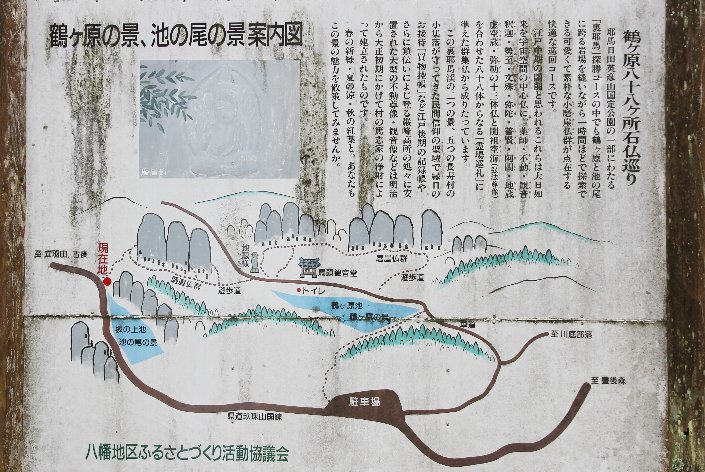 鶴ヶ原の景、池の尾の景案内図
鶴ヶ原八十八ヶ所石仏巡り
耶馬日田英彦山国定公園の一部にわたる
「裏耶馬」探勝コースの中でも鶴ヶ原と池の尾
に跨る岩場を縫いながら一時間ほどで探索で
きる可愛くて素朴な小磨崖仏群が点在する
快適な巡回コースです。
江戸中期の開創と思われるこれらは大日如
来を宇宙空間の中心仏に、薬師・不動・観音
釈迦・勢至・文殊・弥陀・普賢・阿閦・地蔵
虚空蔵・弥勒の十三体仏と開祖空海(弘法尊像)
を合わせた八十八体からなる「霊場巡礼」に
準えた群集仏から成りたっています。
この裏耶馬渓の二つの景、五つの景寿村の
小集落が守ってきた民間信仰の聖域で縁日の
お接待「賀物控帳」など江戸後期の記録帳や
さらに鎮伝いによじ登る巌峰高所の処々に安
置された大型の不動尊像・観音像などは明治
から大正初期にかけて村の篤志家の浄財によ
って建立されたものです。
春の新緑・夏の涼・秋の紅葉と、あなたも
この景の魅力を散策してみませんか。
現在地
遊歩道
馬頭観音堂
磨崖仏群
遊歩道
トイレ
鶴ヶ原池
鶴ヶ原の景
坂の上池
池の尾の景
至 川底部落
至 豊後森
駐車場
県道玖珠山国線
八幡地区ふるさとづくり活動協議会